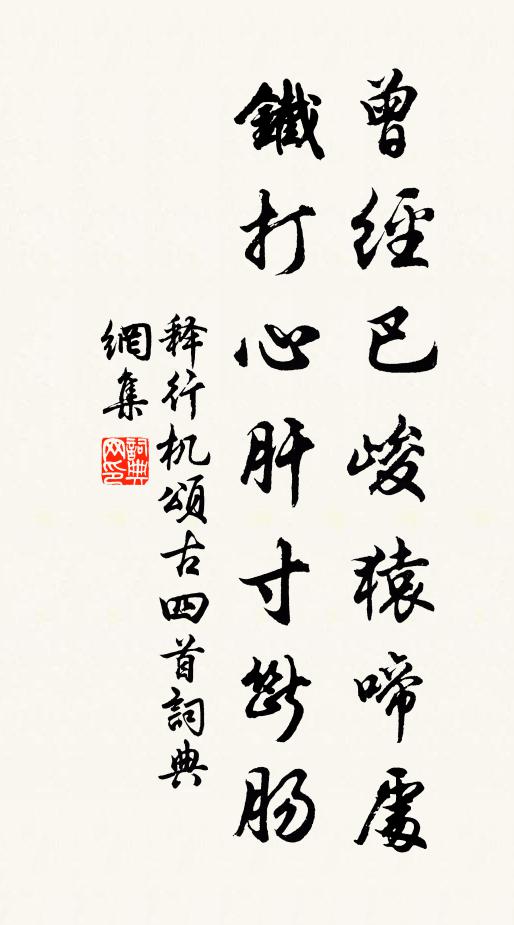 曾經巴峻猿啼處
鐵打心肝寸斷肠
释行机頌古四首詞典
網集
詞典
网印